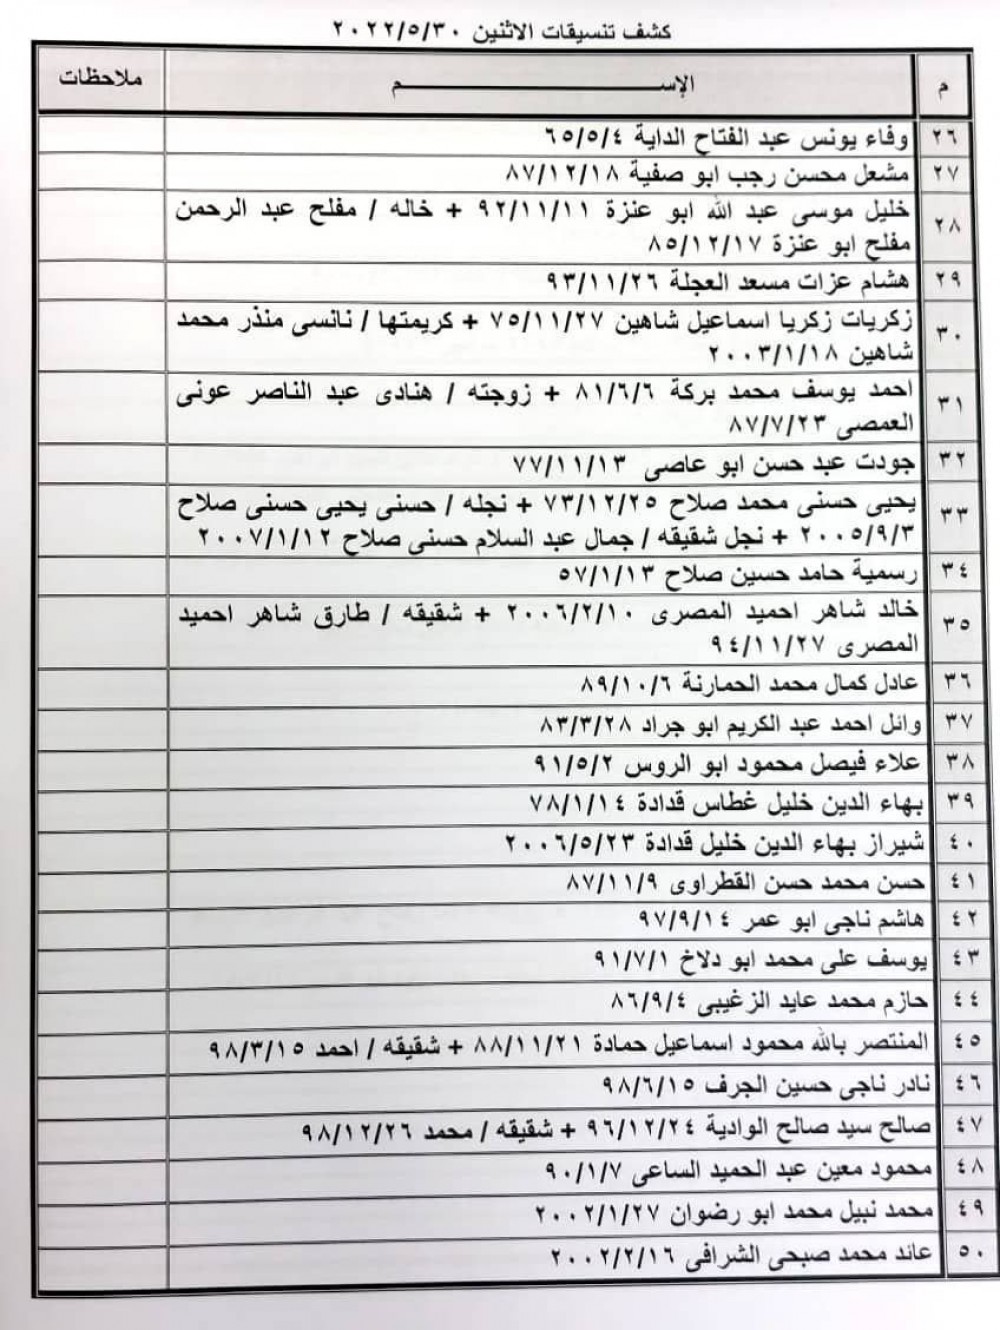 كشف تنسيقات الاثنين ٢٠٢٢/٥/٣٠
م الإســـــــــــــم ملاحظات
٢٦ وفاء يونس عبد الفتاح الداية ٦٥/٥/٤
٢٧ مشعل محسن رجب ابو صفية ٨٧/١٢/١٨
٢٨ خليل موسى عبد الله ابو عنزة ٩٢/١١/١١ + خاله / مفلح عبد الرحمن
مفلح ابو عنزة ٨٥/١٢/١٧
٢٩ هشام عزات مسعد العجلة ٩٣/١١/٢٦
٣٠ زكريات زكريا اسماعيل شاهين ٧٥/١١/٢٧ + كريمتها / نانسى منذر محمد
شاهين ٢٠٠٣/١/١٨
٣١ احمد يوسف محمد بركة ٨١/٦/٦ + زوجته / هنادى عبد الناصر عونى
العمصى ٨٧/٧/٢٣
٣٢ جودت عبد حسن ابو عاصى ٧٧/١١/١٣
٣٣ يحيى حسنى محمد صلاح ٧٣/١٢/٢٥ + نجله / حسنى يحيى حسنى صلاح
٢٠٠٥/٩/٣ + نجل شقيقه / جمال عبد السلام حسنى صلاح ٢٠٠٧/١/١٢
٣٤ رسمية حامد حسين صلاح ٥٧/١/١٣
٣٥ خالد شاهر احميد المصرى ٢٠٠٦/٢/١٠ + شقيقه / طارق شاهر احميد
المصرى ٩٤/١١/٢٧
٣٦ عادل كمال محمد الحمارنة ٨٩/١٠/٦
٣٧ وائل احمد عبد الكريم ابو جراد ٨٣/٣/٢٨
٣٨ علاء فيصل محمود ابو الروس ٩١/٥/٢
٣٩ بهاء الدين خليل غطاس قدادة ٧٨/١/١٤
٤٠ شيراز بهاء الدين خليل قدادة ٢٠٠٦/٥/٢٣
٤١ حسن محمد حسن القطراوى ٨٧/١١/٩
٤٢ هاشم ناجى ابو عمر ٩٧/٩/١٤
٤٣ يوسف على محمد ابو دلاخ ٩١/٧/١
٤٤ حازم محمد عايد الزغيبى ٨٦/٩/٤
٤٥ المنتصر بالله محمود اسماعيل حمادة ٨٨/١١/٢١ + شقيقه / احمد ٩٨/٣/١٥
٤٦ نادر ناجى حسين الجرف ٩٨/٦/١٥
٤٧ صالح سيد صالح الوادية ٩٦/١٢/٢٤ + شقيقه / محمد ٩٨/١٢/٢٦
٤٨ محمود معين عبد الحميد الساعى ٩٠/١/٧
٤٩ محمد نبيل محمد ابو رضوان ٢٠٠٢/١/٢٧
٥٠ عائد محمد صبحى الشرافى ٢٠٠٢/٢/١٦